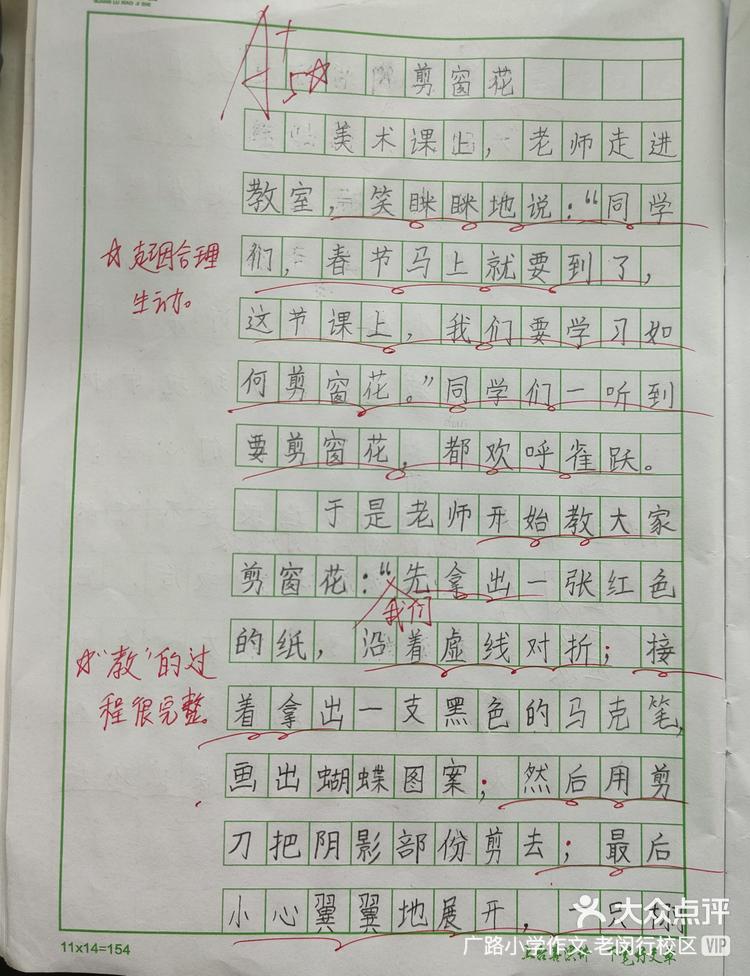 A+ 5☆
剪窗花
美术课上，老师走进
教室，笑眯眯地说：“同学
们，春节马上就要到了，
☆起因合理
生动。
这节课上，我们要学习如
何剪窗花。”同学们一听到
要剪窗花，都欢呼雀跃。
于是老师开始教大家
剪窗花：“先拿出一张红色
我们
的纸，沿着虚线对折；接
☆“教”的过
程很完整。
着拿出一支黑色的马克笔，
画出蝴蝶图案；然后用剪
刀把阴影部份剪去；最后
小心翼翼地展开，一只
大众点评
广路小学作文 老闵行校区 VIP
11x14=154